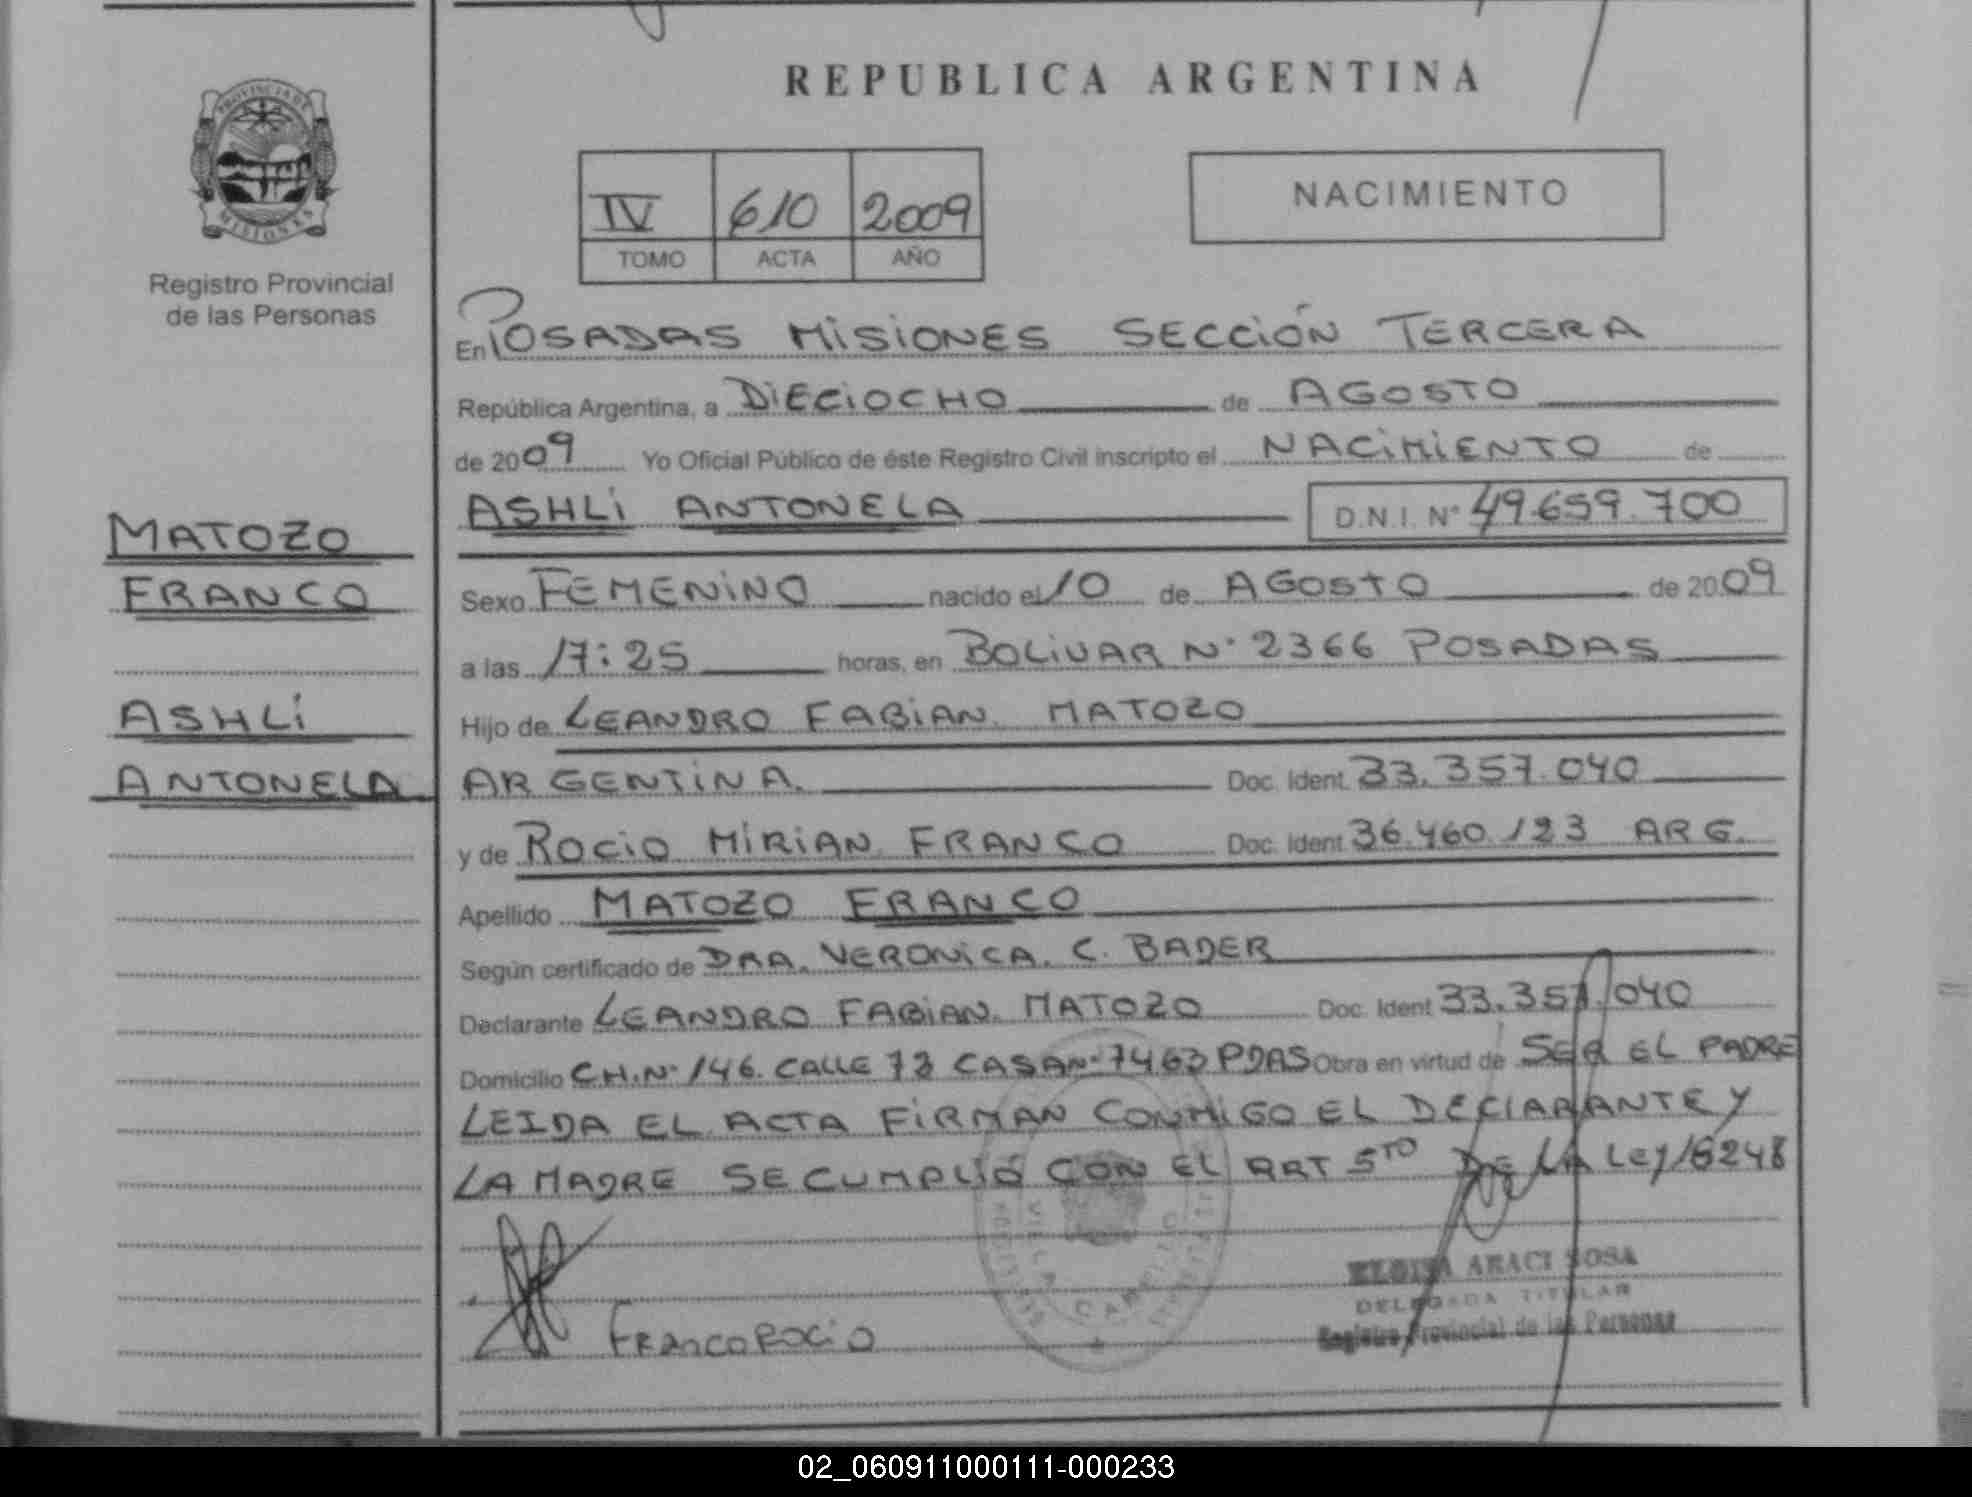 REPUBLICA ARGENTINA
PROVINCIA DE
MISIONES
Registro Provincial
de las Personas
IV 610 2009
TOMO ACTA AÑO
NACIMIENTO
En POSADAS MISIONES SECCIÓN TERCERA
República Argentina, a DIECIOCHO de AGOSTO
de 2009 Yo Oficial Público de éste Registro Civil inscripto el NACIMIENTO de
ASHLI ANTONELA D.N.I. N° 49.659.700
MATOZO
FRANCO
ASHLI
ANTONELA
Sexo FEMENINO nacido el 10 de AGOSTO de 2009
a las 17:25 horas, en BOLIVAR N° 2366 POSADAS
Hijo de LEANDRO FABIAN MATOZO
ARGENTINA. Doc. Ident. 33.357.040
y de ROCIO MIRIAN FRANCO Doc. Ident. 36.460.123 ARG.
Apellido MATOZO FRANCO
Según certificado de DRA. VERONICA. C. BADER
Declarante LEANDRO FABIAN MATOZO Doc. Ident 33.357.040
Domicilio CH.N° 146. CALLE CASA N° 7463 PDAS Obra en virtud de SER EL PADRE
LEIDA EL ACTA FIRMAN CONMIGO EL DECLARANTE Y
LA MADRE SE CUMPLIÓ CON EL ART 5TO DE LA LEY 18248
FRANCO ROCIO
ELOISA ARACI SOSA
DELEGADA TITULAR
Registro Provincial de las Personas
02_060911000111-000233